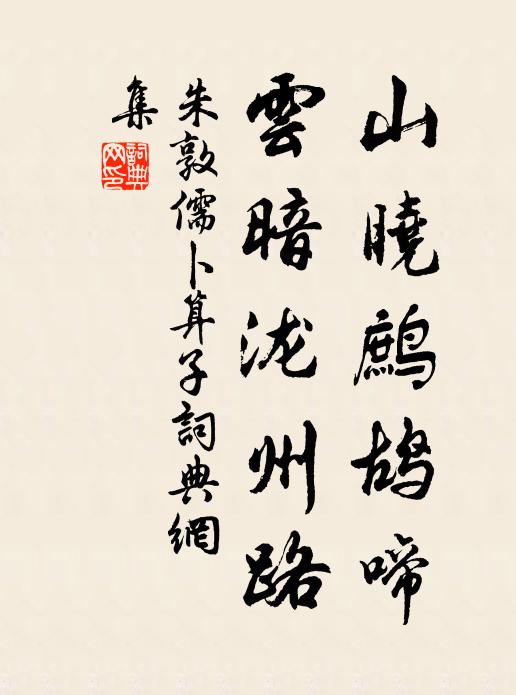 山曉鷓鴣啼
雲暗泷州路
朱敦儒卜算子詞典網
集
詞典
网印